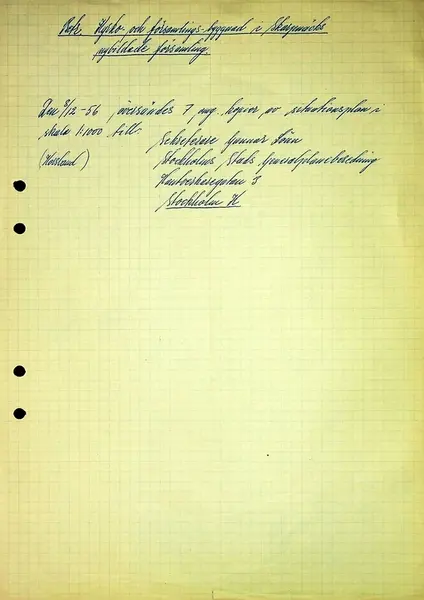 Kyrko och församlings-byggnad i Skarpnäcks
nybildade församling.
Den 8/12-56 översändes 7 kopior av situationsplan i
skala 1:1000 till
Sekreterare Gunnar
Stockholms Stads Generalplaneberedning
Hantverkaregatan 3
Stockholm K